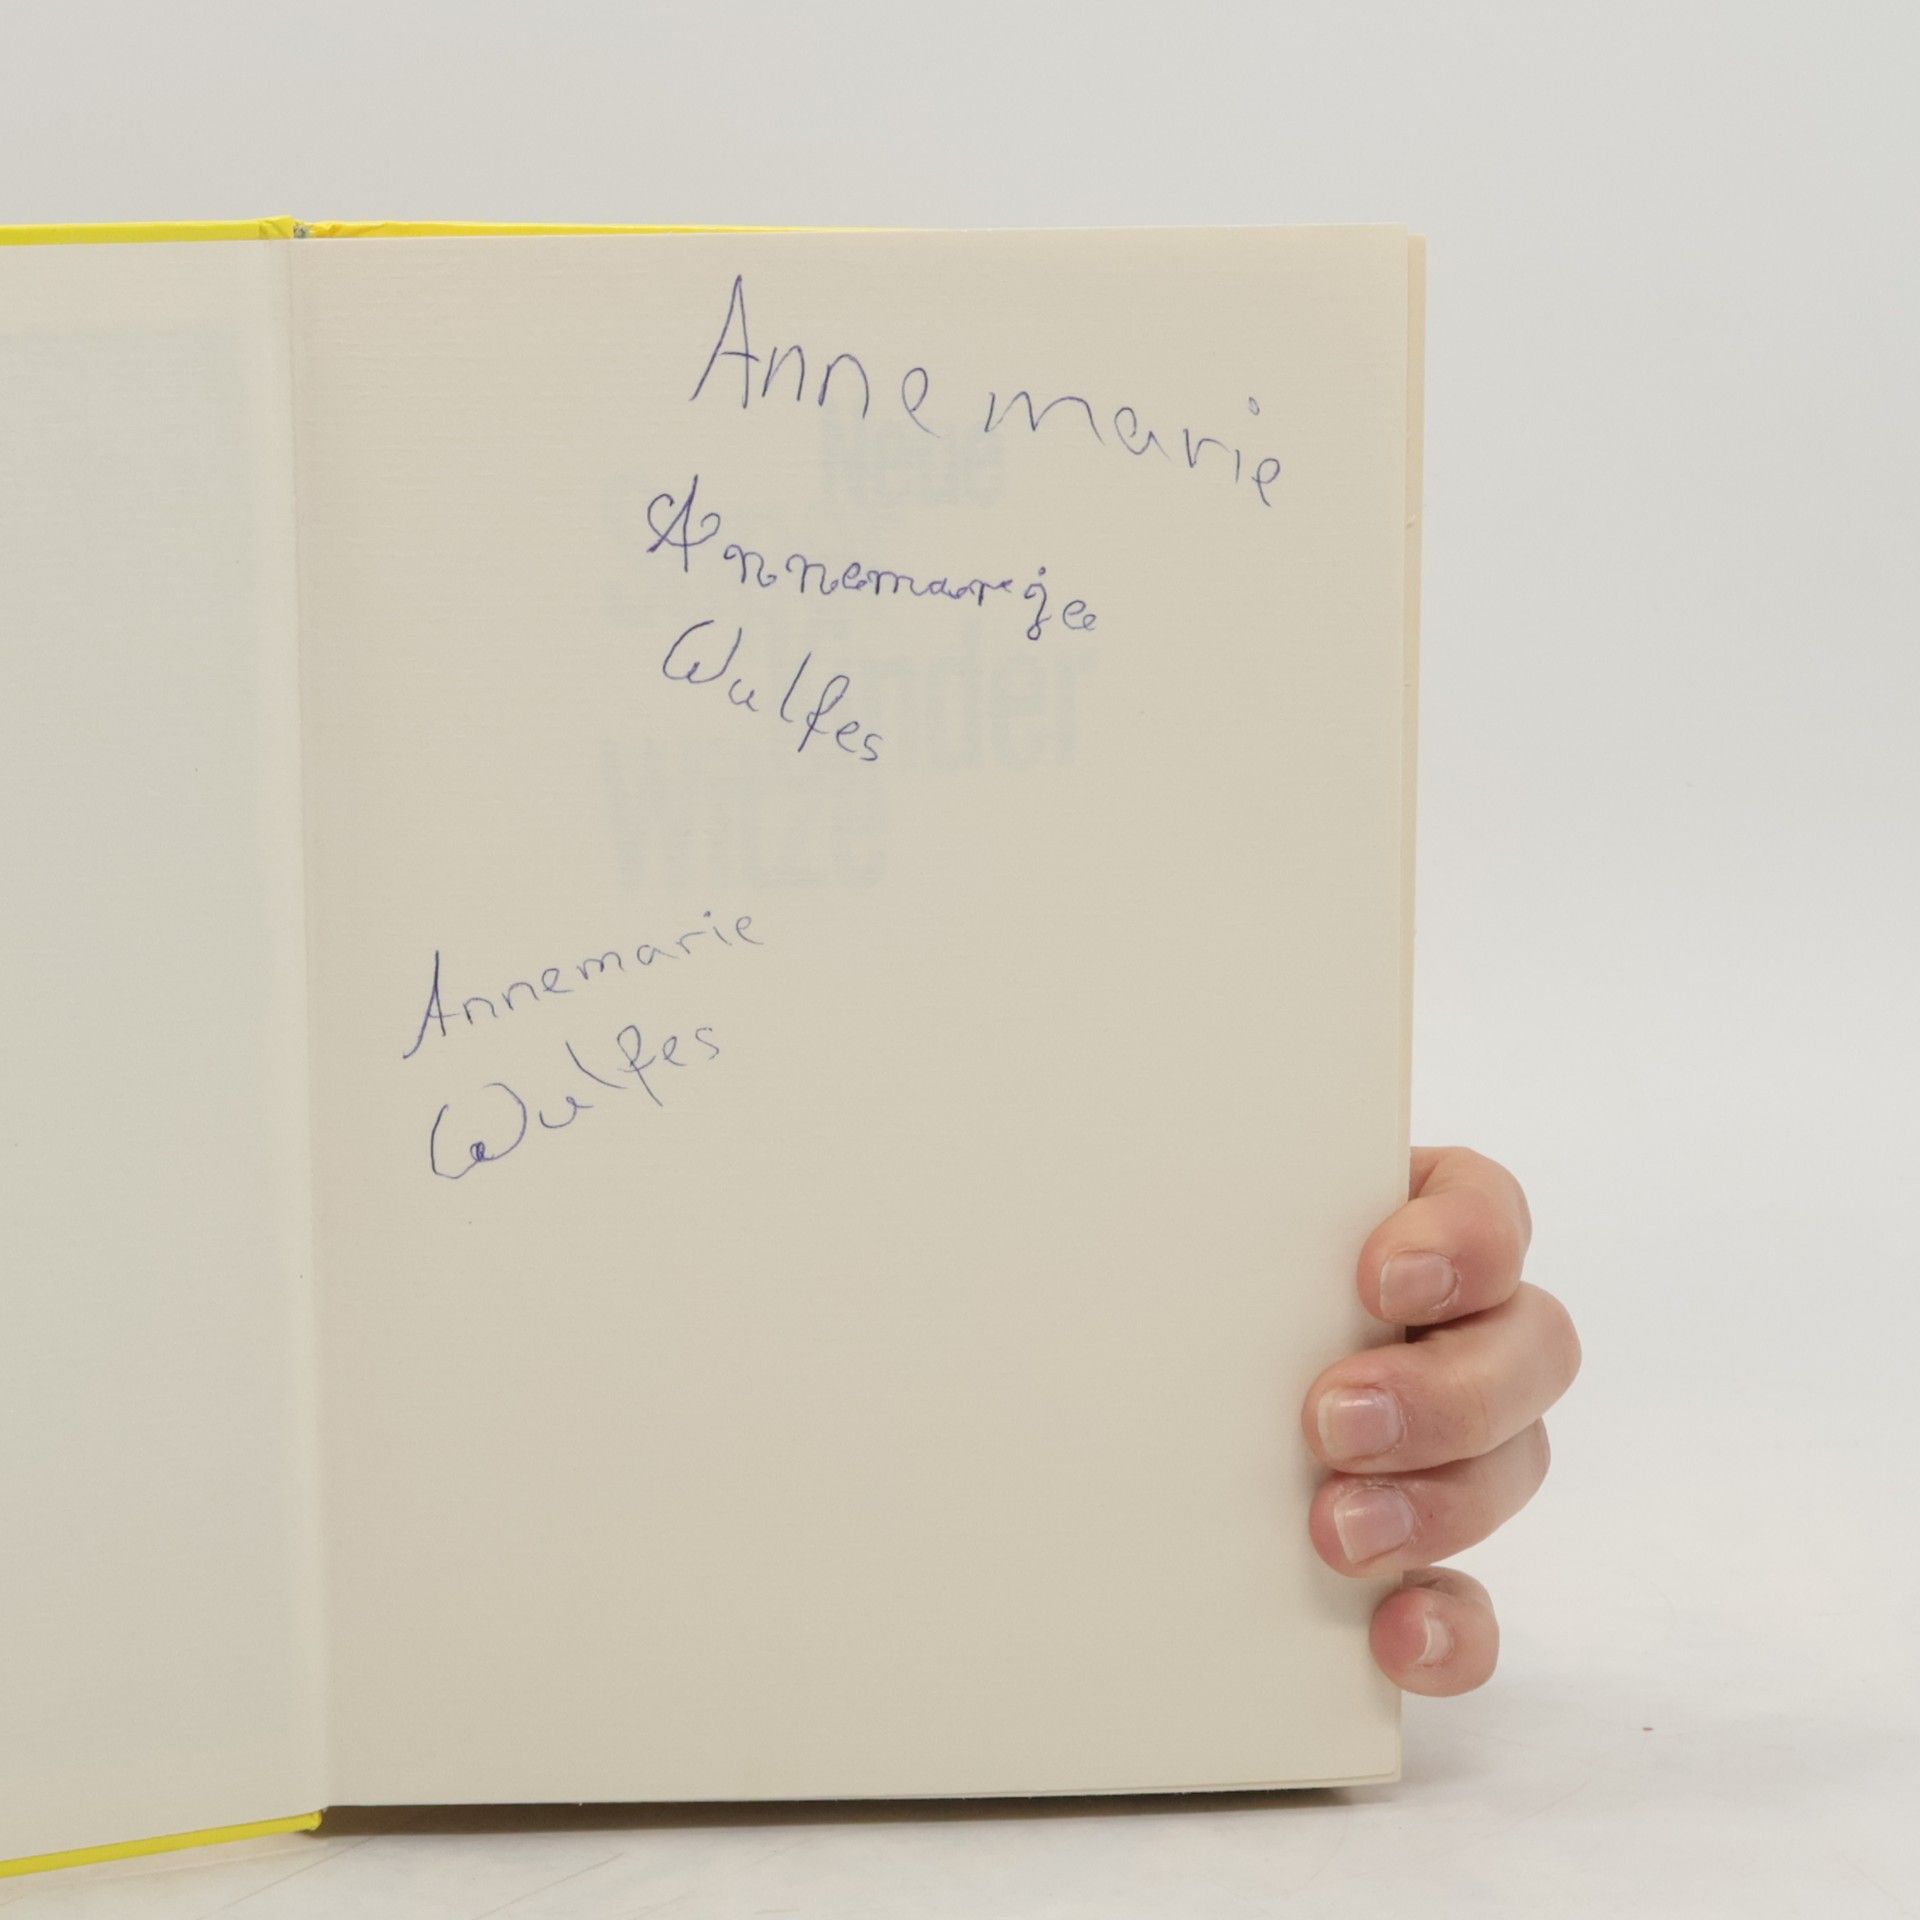 Annemarie
Annemarje
Wulfes
Annemarie
Wulfes